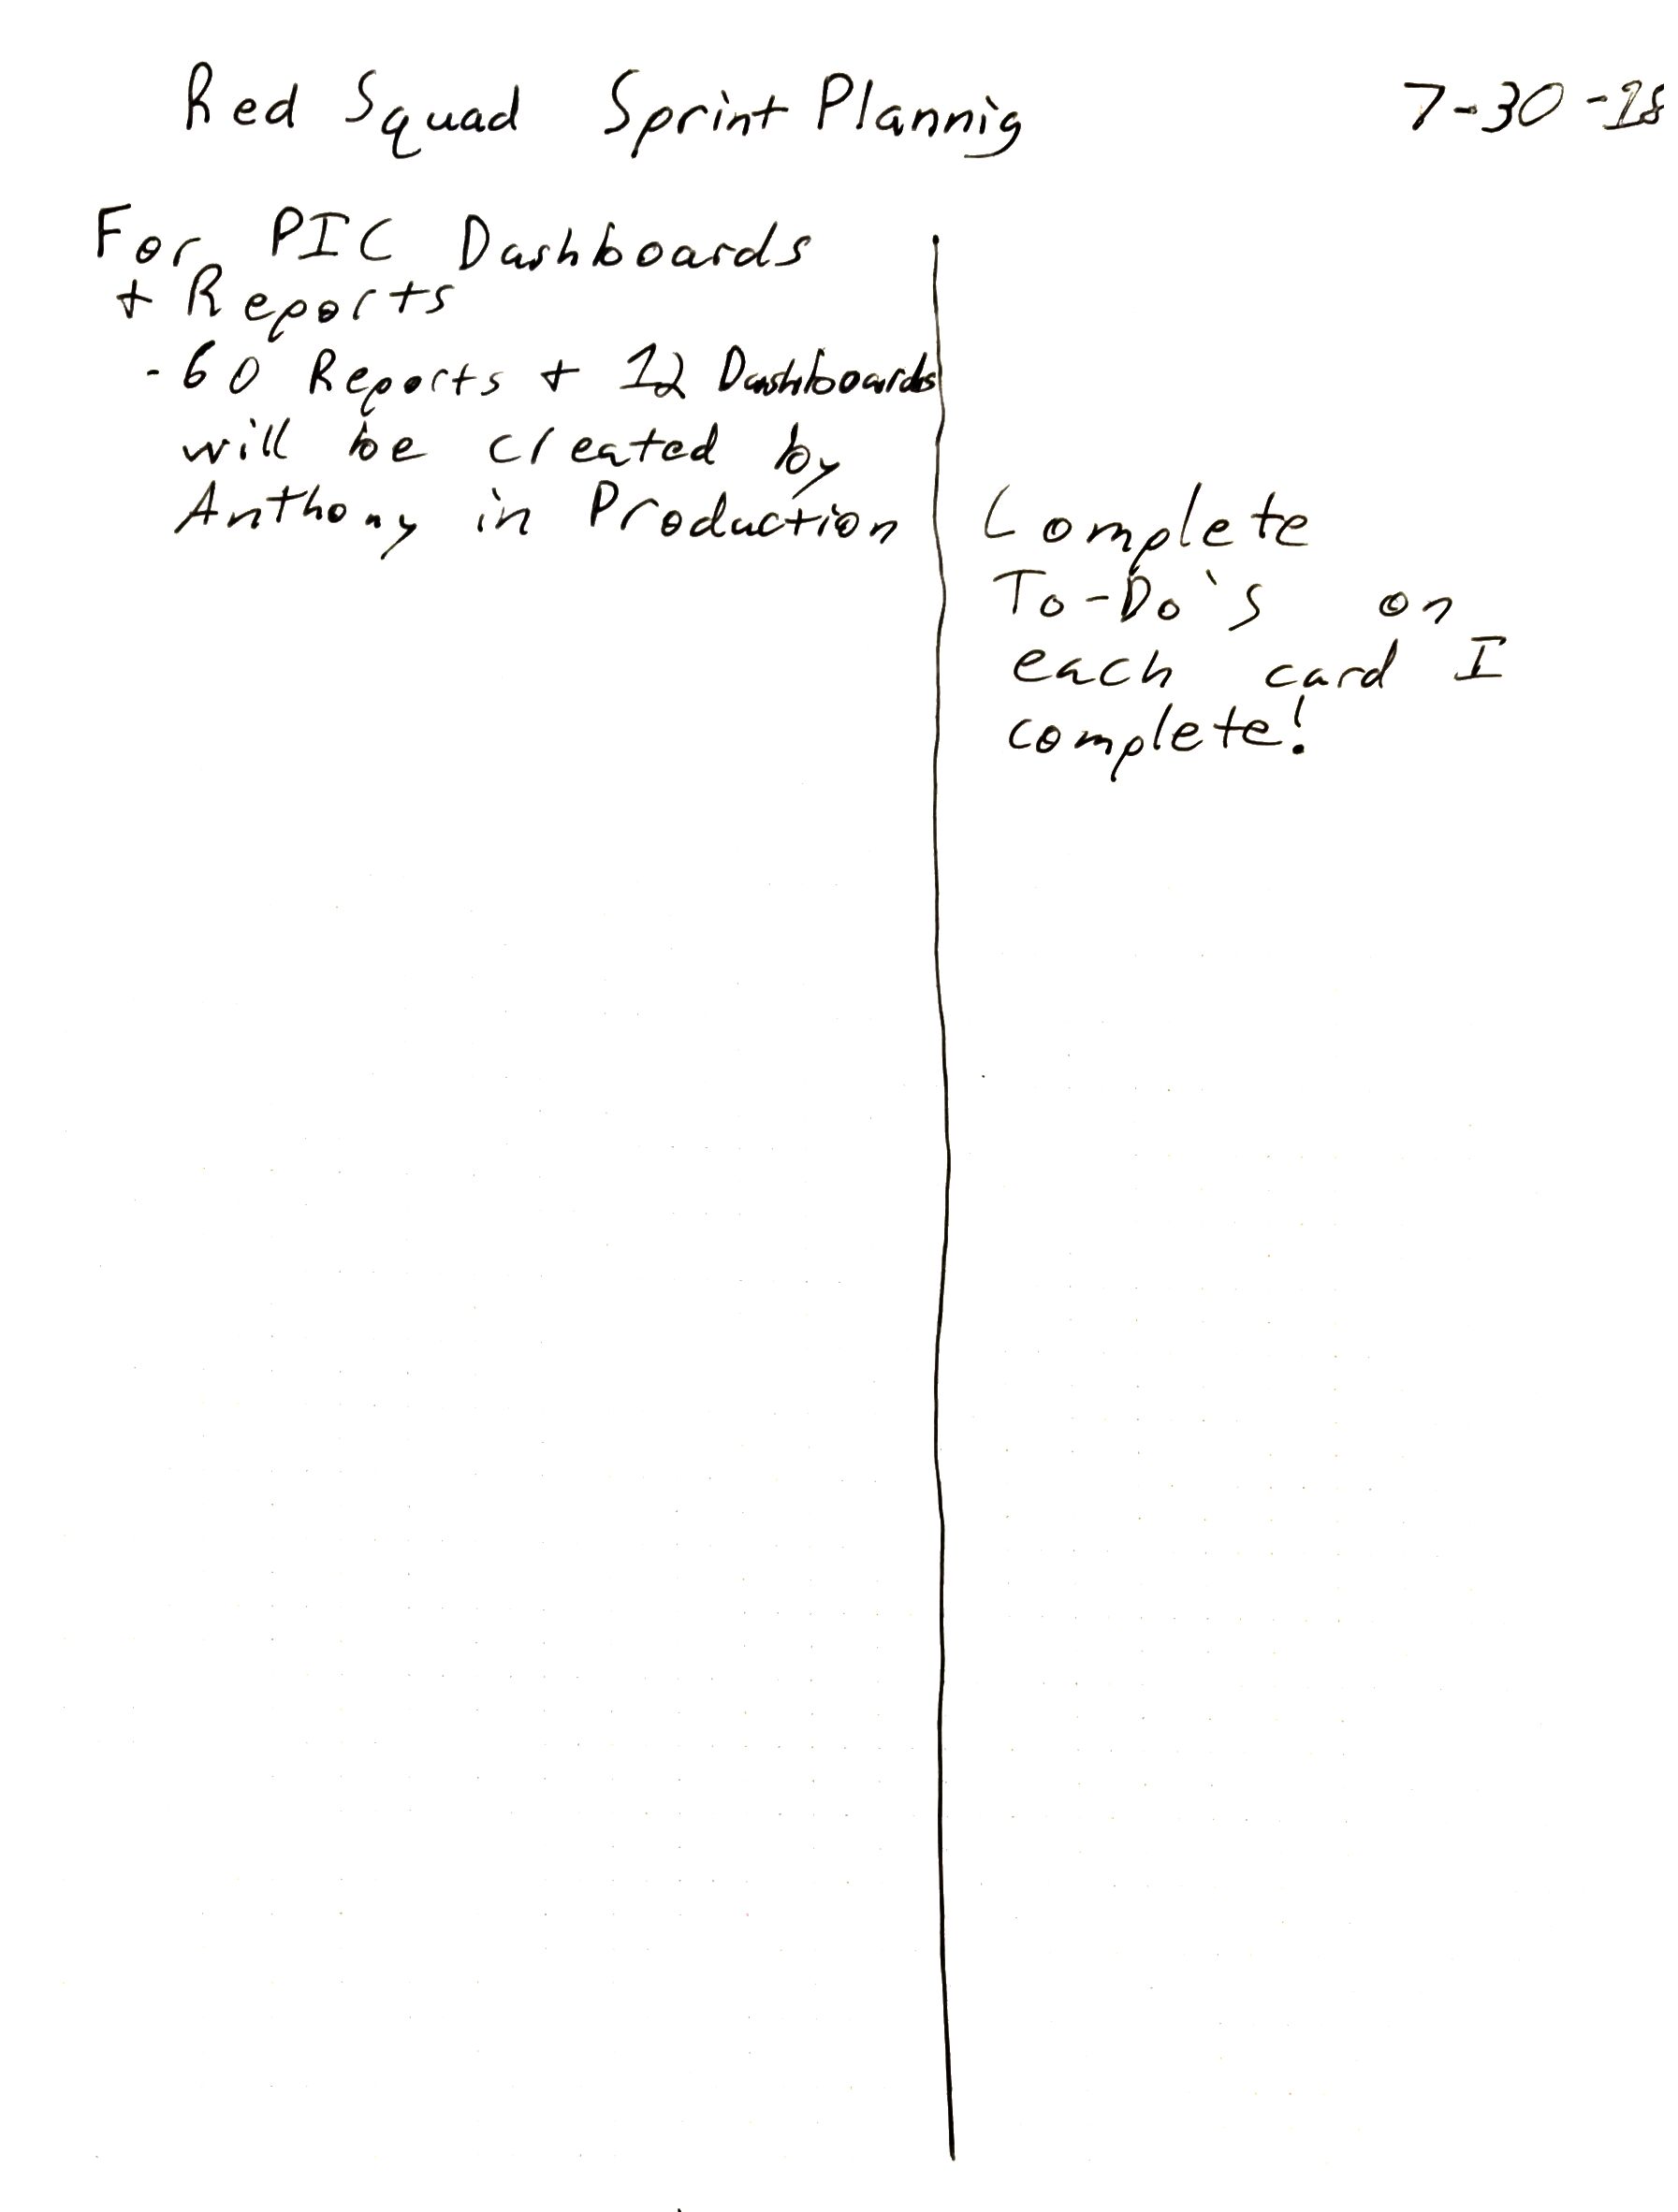 Red Squad Sprint Plannig 7-30-18
For PIC Dashboards
+ Reports
- 60 Reports + 12 Dashboards
will be created by
Anthony in Production
Complete
To-Do's on
each card I
complete!